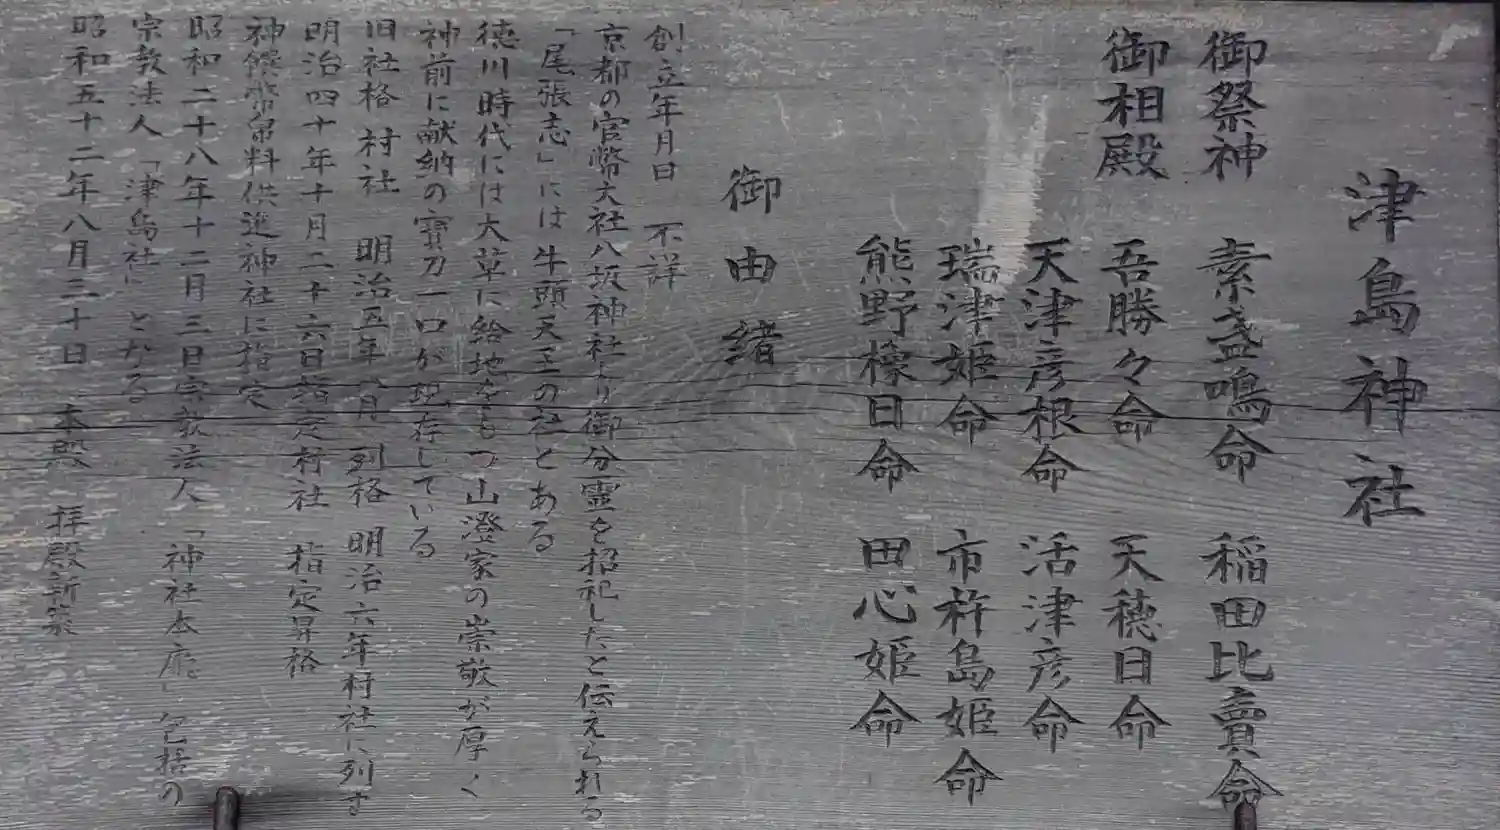 津島神社
御祭神 素盞鳴命 稲田比賣命
御相殿 吾勝々命 天穂日命
天津彦根命 活津彦命
瑞津姫命 市杵島姫命
熊野櫲日命 田心姫命
御由緒
創立年月日 不詳
京都の官幣大社八坂神社より御分霊を招祀したと伝えられる
「尾張志」には牛頭天王の社とある
徳川時代には大草に給地をもつ山澄家の崇敬が厚く
神前に献納の寶刀一口が現存している
旧社格 村社 明治五年 月 列格 明治六年村社に列す
明治四十年十月二十六日指定村社 指定昇格
神饌幣帛料供進神社に指定
昭和二十八年十二月三日宗教法人「神社本庁」包括の
宗教法人「津島社」となる
昭和五十二年八月三十日 本殿 拝殿新築